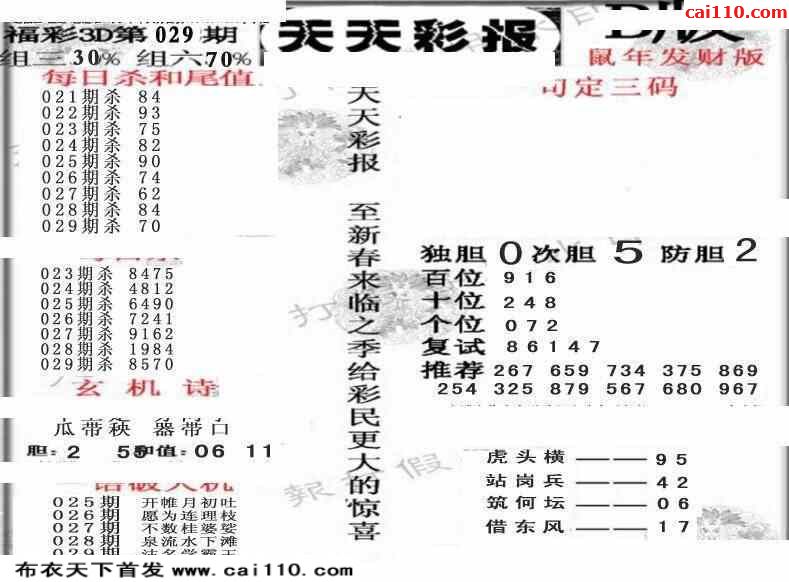 cai110.com
福彩3D第029期
天天彩报
组三30% 组六70%
鼠年发财版
每日杀和尾值
定三码
021期杀 84
022期杀 93
023期杀 75
024期杀 82
025期杀 90
026期杀 74
027期杀 62
028期杀 84
029期杀 70
天天彩报 至新春来临之季给彩民更大的惊喜
023期杀 8475
024期杀 4812
025期杀 6490
026期杀 7241
027期杀 9162
028期杀 1984
029期杀 8570
独胆 0 次胆 5 防胆 2
百位 916
十位 248
个位 072
复试 86147
推荐 267 659 734 375 869
254 325 879 567 680 967
玄机诗
胆:2 55 和值:06 11
虎头横——95
站岗兵——42
筑何坛——06
借东风——17
025期 开帷月初吐
026期 愿为连理枝
027期 不数桂婆娑
028期 泉流水下滩
029期
打
報 假
布衣天下首发 www.cai110.com